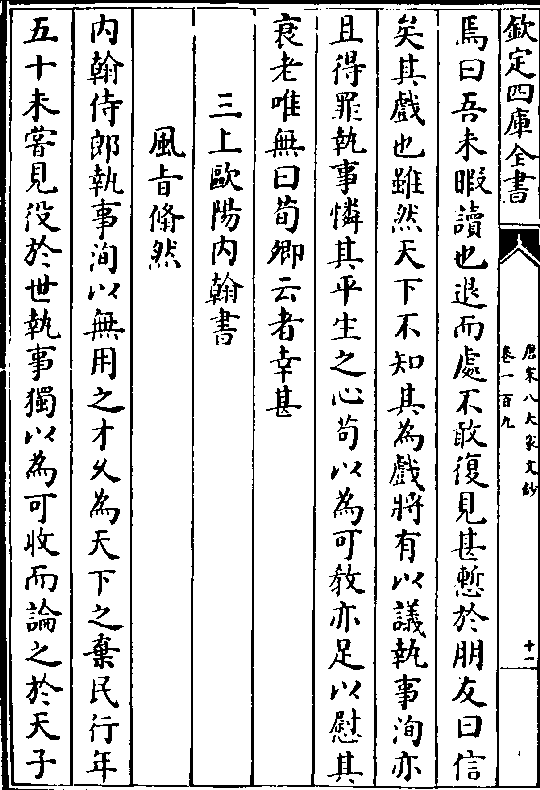 欽定四庫全書
唐宋八大家文鈔
卷一百九
十二
焉曰吾未暇讀也退而處不敢復見甚慙於朋友曰信
矣其戲也雖然天下不知其為戲將有以議執事洵亦
且得罪執事憐其平生之心苟以為可教亦足以慰其
衰老唯無曰荀卿云者幸甚
三上歐陽内翰書
風㫖翛然
内翰侍郎執事洵以無用之才乆為天下之棄民行年
五十未甞見役於世執事獨以為可收而論之於天子